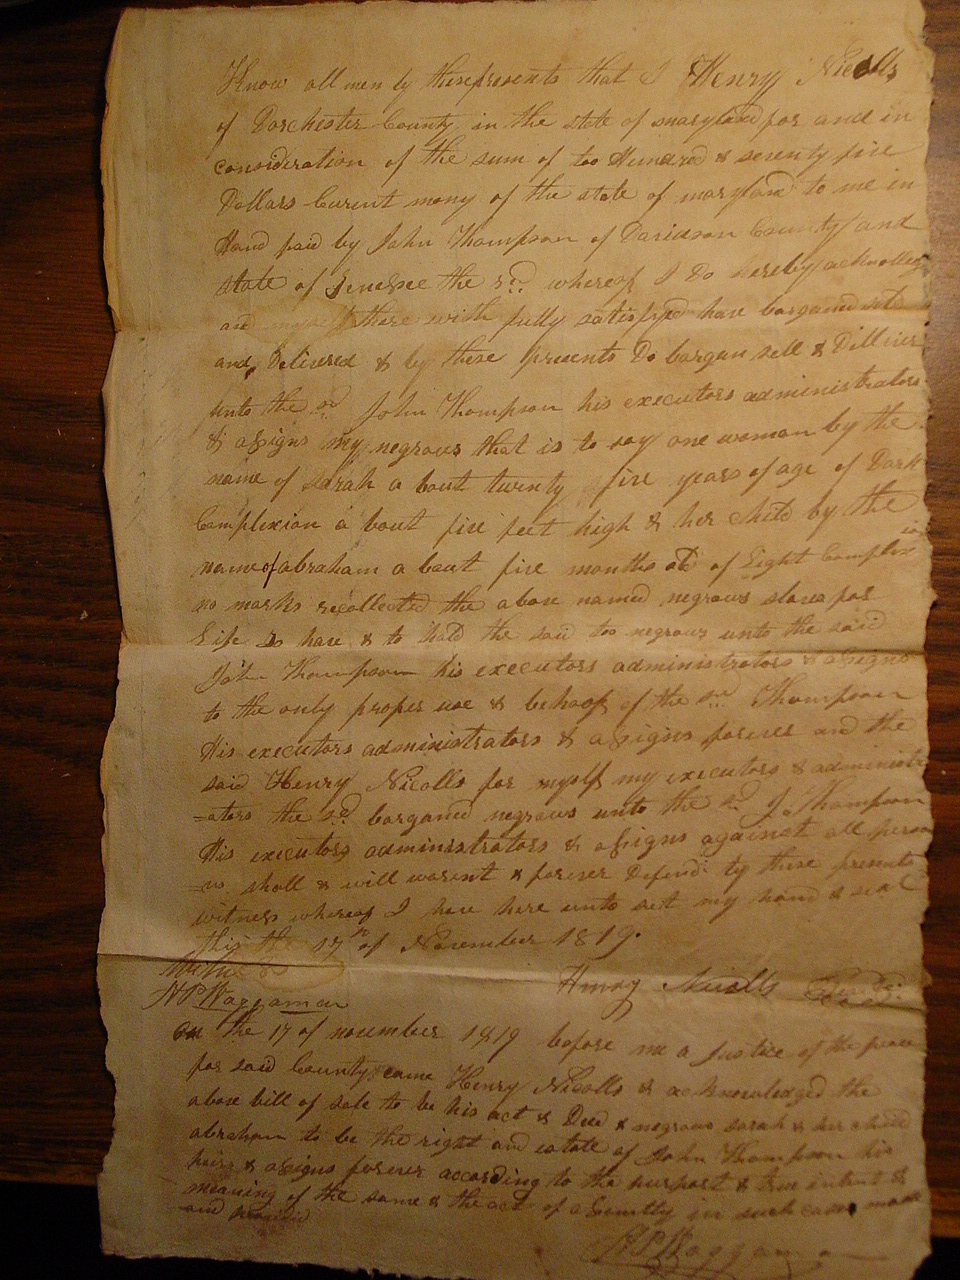 Know all men by these presents that I Henry Nicolls
of Dorchester County in the state of maryland for and in
consideration of the sum of too Hundred & seventy five
Dollars Curent mony of the state of maryland to me in
Hand paid by John Thompson of Davidson County and
state of the sd. whereof I Do hereby acknolleg
and myself there with fully satisfyed have bargained sold
and Delivered & by these presents Do bargan sell & Dilliver
unto the sd John Thompson his executors administrators
& assigns my negrows that is to say one woman by the
name of sarah a bout twenty five years of age of Dark
Complexion a bout five feet high & her child by the
name of abraham a bout five months old of Light Complexion
no marks recollected the above named negrows slaves for
Life to have & to hold the said too negrows unto the said
John Thompson his executors administrators & assigns
to the only proper use & behoof of the sd. Thompson
His executors administrators & assigns forever and the
said Henry Nicolls for myself my executors & administ
=ators the sd. barganed negrows unto the sd. J. Thompson
His executors administrators & assigns against all person
=ns shall & will warent & forever Defend by these presents
witness whereof I have here unto set my hand & seal
this the 17th of November 1819.
Henry Nicolls
H P Waggaman
on the 17 of november 1819 before me a Justice of the peace
for said County came Henry Nicolls & acknowledged the
above bill of sale to be his act & Deed & negrows sarah & her child
abraham to be the right and estate of John Thompson his
heirs & assigns forever according to the purport & true entent &
meaning of the same & the act of assembly in such cases made
and
H P Waggaman